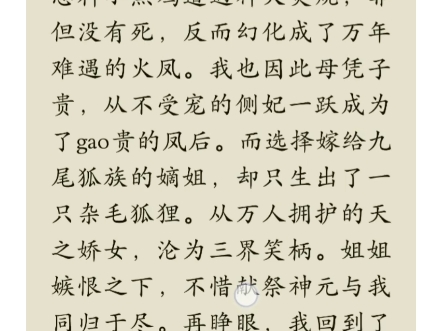 但没有死，反而幻化成了万年
难遇的火凤。我也因此母凭子
贵，从不受宠的侧妃一跃成为
了gao贵的凤后。而选择嫁给九
尾狐族的嫡姐，却只生出了一
只杂毛狐狸。从万人拥护的天
之娇女，沦为三界笑柄。姐姐
嫉恨之下，不惜献祭神元与我
同归于尽。再睁眼，我回到了